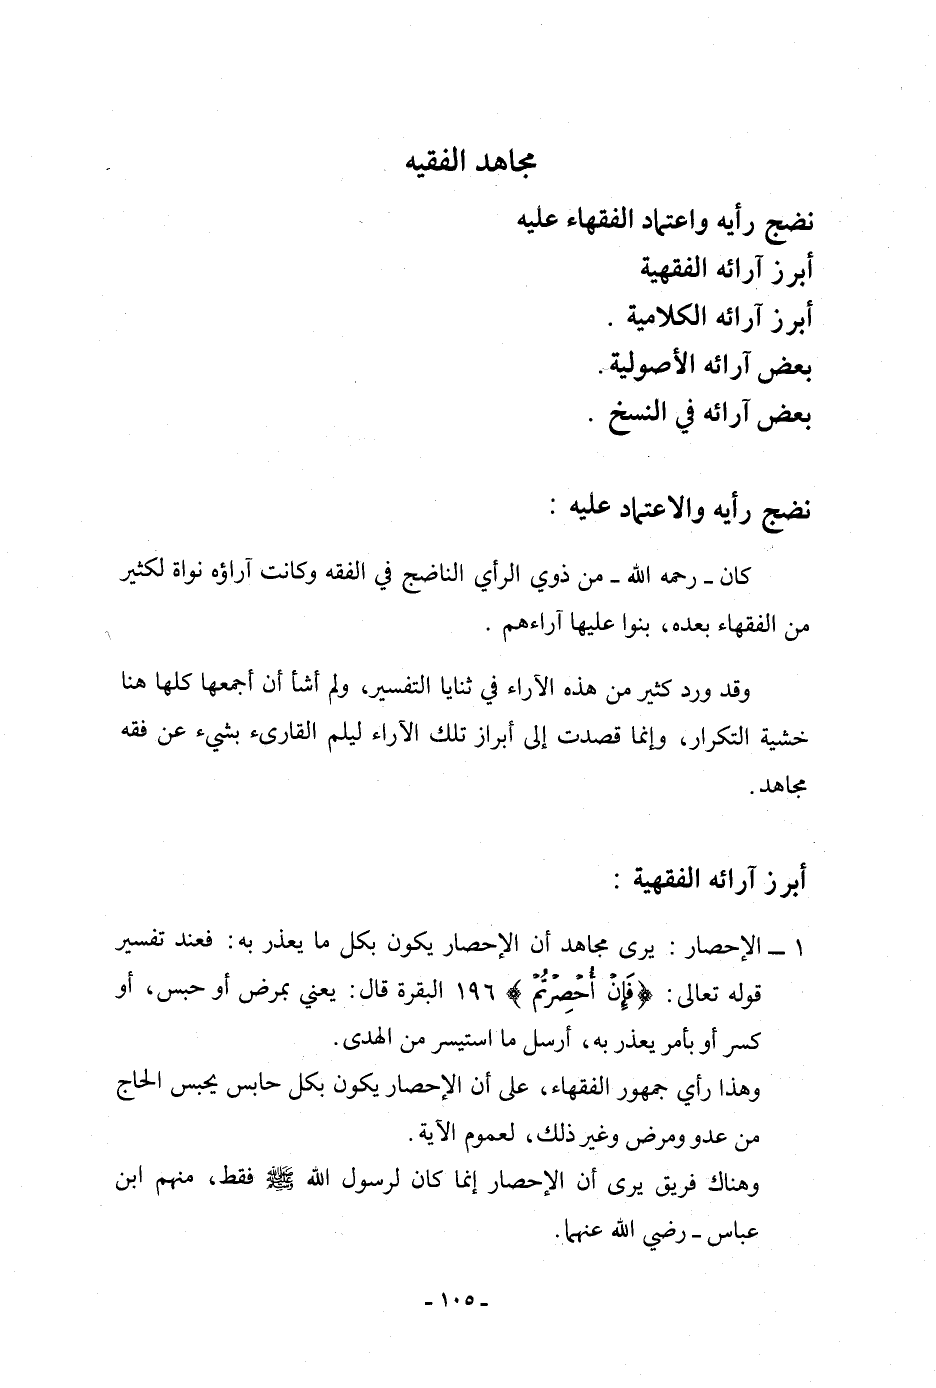 مجاهد الفقيه
نضج رأيه واعتماد الفقهاء عليه
أبرز آرائه الفقهية
أبرز آرائه الكلامية .
بعض آرائه الأصولية .
بعض آرائه في النسخ .
نضج رأيه والاعتماد عليه :
كان ـ رحمه الله ـ من ذوي الرأي الناضج في الفقه وكانت آراؤه نواة لكثير
من الفقهاء بعده، بنوا عليها آراءهم .
وقد ورد كثير من هذه الآراء في ثنايا التفسير، ولم أشأ أن أجمعها كلها هنا
خشية التكرار، وإنما قصدت إلى أبراز تلك الآراء ليلم القارىء بشيء عن فقه
مجاهد .
أبرز آرائه الفقهية :
١ ـ الإحصار : يرى مجاهد أن الإحصار يكون بكل ما يعذر به : فعند تفسير
قوله تعالى : ﴿ فَإِنْ أُحْصِرْتُمْ ﴾ ١٩٦ البقرة قال : يعني بمرض أو حبس، أو
كسر أو بأمر يعذر به، أرسل ما استيسر من الهدى .
وهذا رأي جمهور الفقهاء، على أن الإحصار يكون بكل حابس يحبس الحاج
من عدو ومرض وغير ذلك، لعموم الآية .
وهناك فريق يرى أن الإحصار إنما كان لرسول الله ﷺ فقط، منهم ابن
عباس ـ رضي الله عنهما .
ـ ١٠٥ ـ